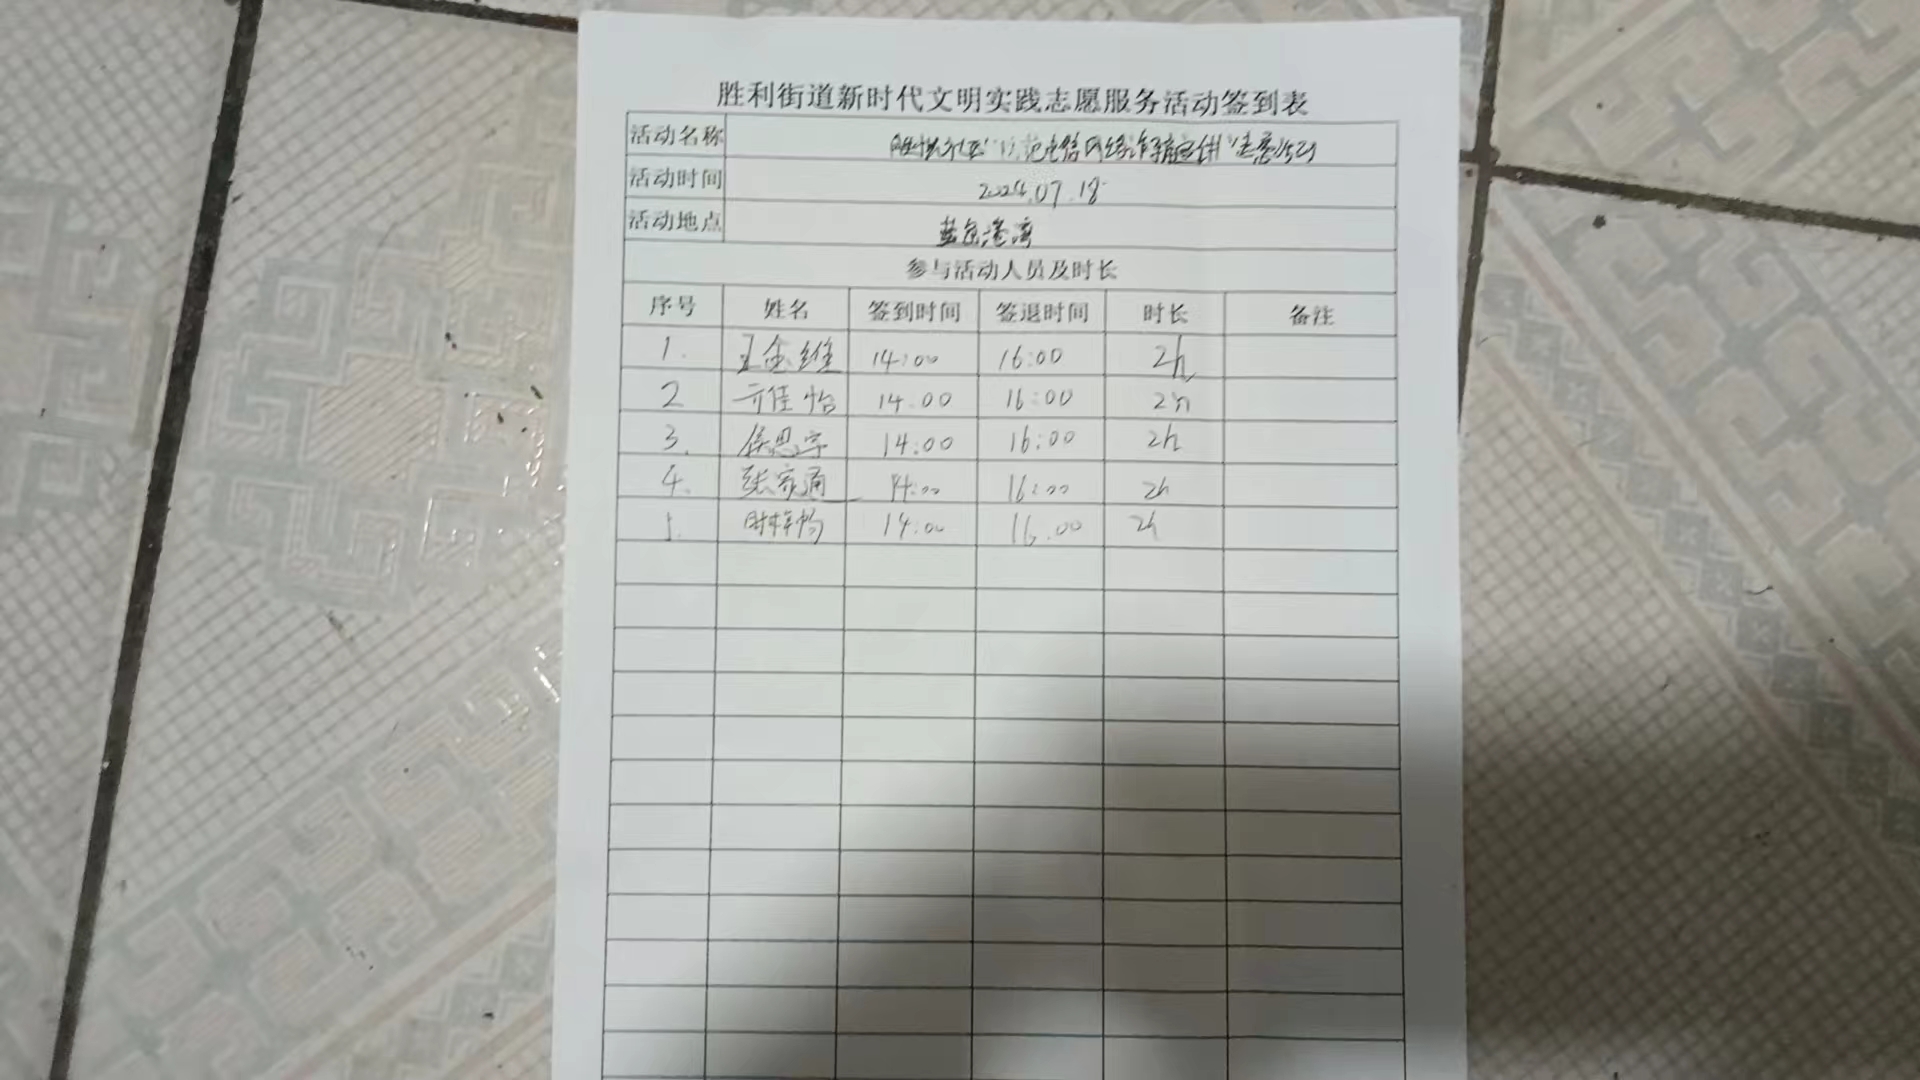 胜利街道新时代文明实践志愿服务活动签到表
活动名称 社区"防范电信网络诈骗宣传"志愿活动
活动时间 2024.07.18
活动地点 蓝色港湾
参与活动人员及时长
序号 姓名 签到时间 签退时间 时长 备注
1. 王金维 14:00 16:00 2h
2 亓佳怡 14:00 16:00 2h
3. 侯思宇 14:00 16:00 2h
4. 张家通 14:00 16:00 2h
14:00 16:00 2h